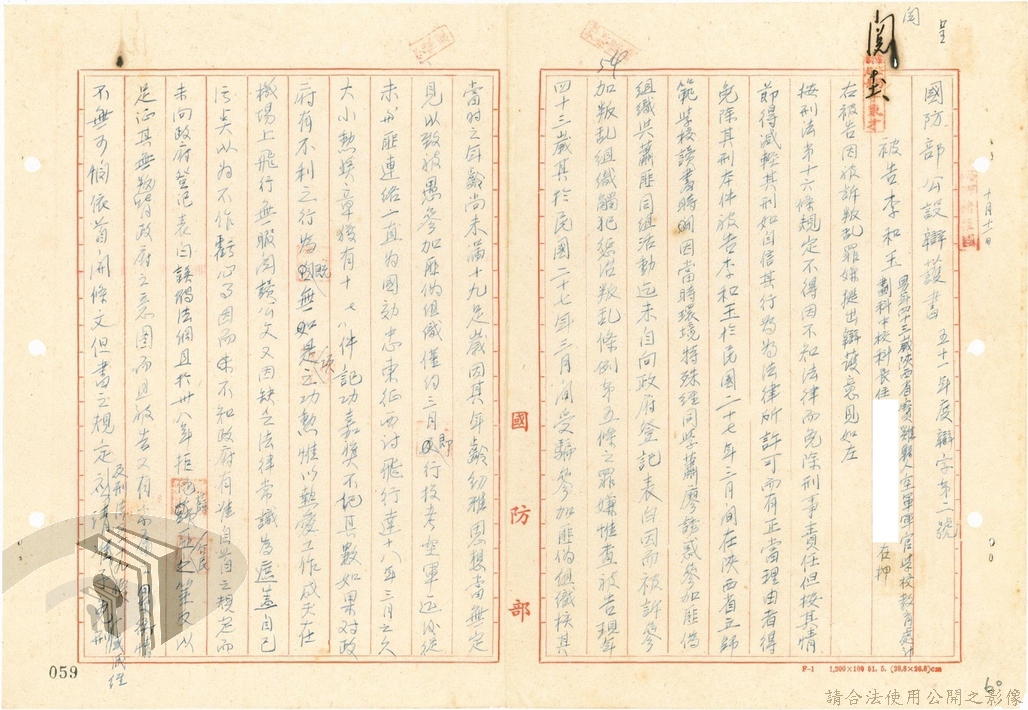 呈
閱
閱
十月十一日
國防部公設辯護書 五十一年度辯字第二號
被告李和玉 男年四十三歲陝西省賓雞縣人空軍軍官學校教育處計
劃科中校科長住 在押
右被告因被訴叛乱罪嫌提出辯護意見如左
按刑法第十六條規定不得因不知法律而免除刑事責任但按其情
節得減輕其刑如自信其行為為法律所許可而有正當理由者得
免除其刑本件被告李和玉於民國二十七年三月間在陝西省立師
範學校讀書時因當時環境特殊經同學蕭廖誘惑參加匪偽
組織與蕭匪同組活動迄未自向政府登記表白因而被訴參
加叛乱組織觸犯懲治叛乱條例第五條之罪嫌惟查被告現年
四十三歲其於民國二十七年三月間受騙參加匪偽組織核其
54
國防部
F-1 1,200×100 51. 5. (39.5×26.8)cm
60
當時之年齡尚未滿十九足歲因其年齡幼稚思想當無定
見以致被愚參加匪偽組織僅約三月即行投考空軍迄後從
未與匪連絡一直為國効忠東征西討飛行達十八年三月之久
大小勳獎章獲有十八件記功嘉獎不記其數如果對政
府有不利之行為既無如是之功勲惟以熱愛工作成天在
機場上飛行無暇閱讀公文又因缺乏法律常識為遮盖自己
污点以為不作虧心事因而未不知政府有准自首之規定而
未向政府登記表白誤觸法網且於卅八年拒
足证其無叛背政府之意圖而且被告又有
不無可憫依首開條文但書之規定
059
請合法使用公開之影像